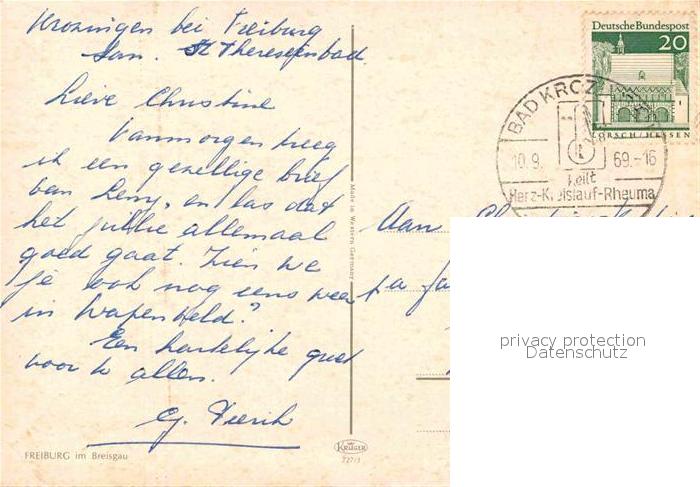 Krozingen bei Freiburg
San. St Theresienbad.
Lieve Christine
Vanmorgen kreeg
ik een gezellige brief
van Leny, en las dat
het jullie allemaal
goed gaat. Zien we
je ook nog eens weer
in Wapenveld?
Een hartelijke groet
voor U allen.
FREIBURG im Breisgau
Made in Western Germany
KRÜGER
Deutsche Bundespost
20
LORSCH/HESSEN
BAD KROZ
10.9. 69.-16
heilt
Herz-Kreislauf-Rheuma
Aan
p/a
privacy protection
Datenschutz